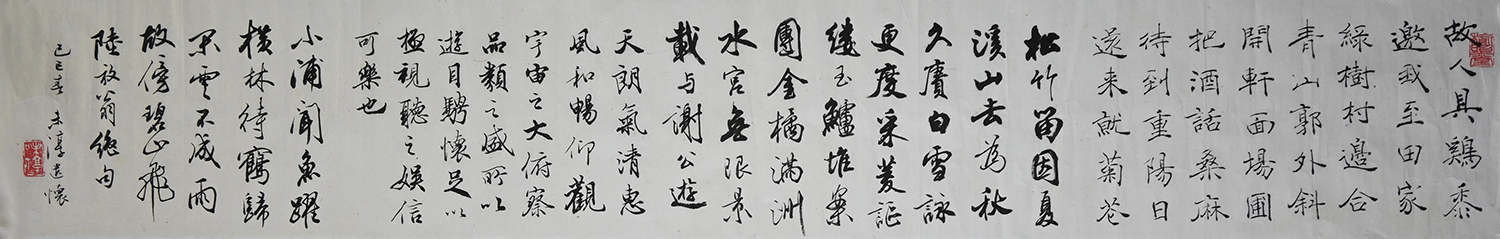 故人具鷄黍
邀我至田家
綠樹村邊合
青山郭外斜
開軒面場圃
把酒話桑麻
待到重陽日
還來就菊花
松竹留因夏
溪山去為秋
久賡白雪詠
更度采菱謳
縷玉鱸堆案
團金橘滿洲
水宮無限景
載与謝公遊
天朗氣清惠
風和暢仰觀
宇宙之大俯察
品類之盛所以
遊目騁懷足以
極視聽之娛信
可樂也
小浦聞魚躍
橫林待鶴歸
閑雲不成雨
故傍碧山飛
陸放翁絶句
己巳春